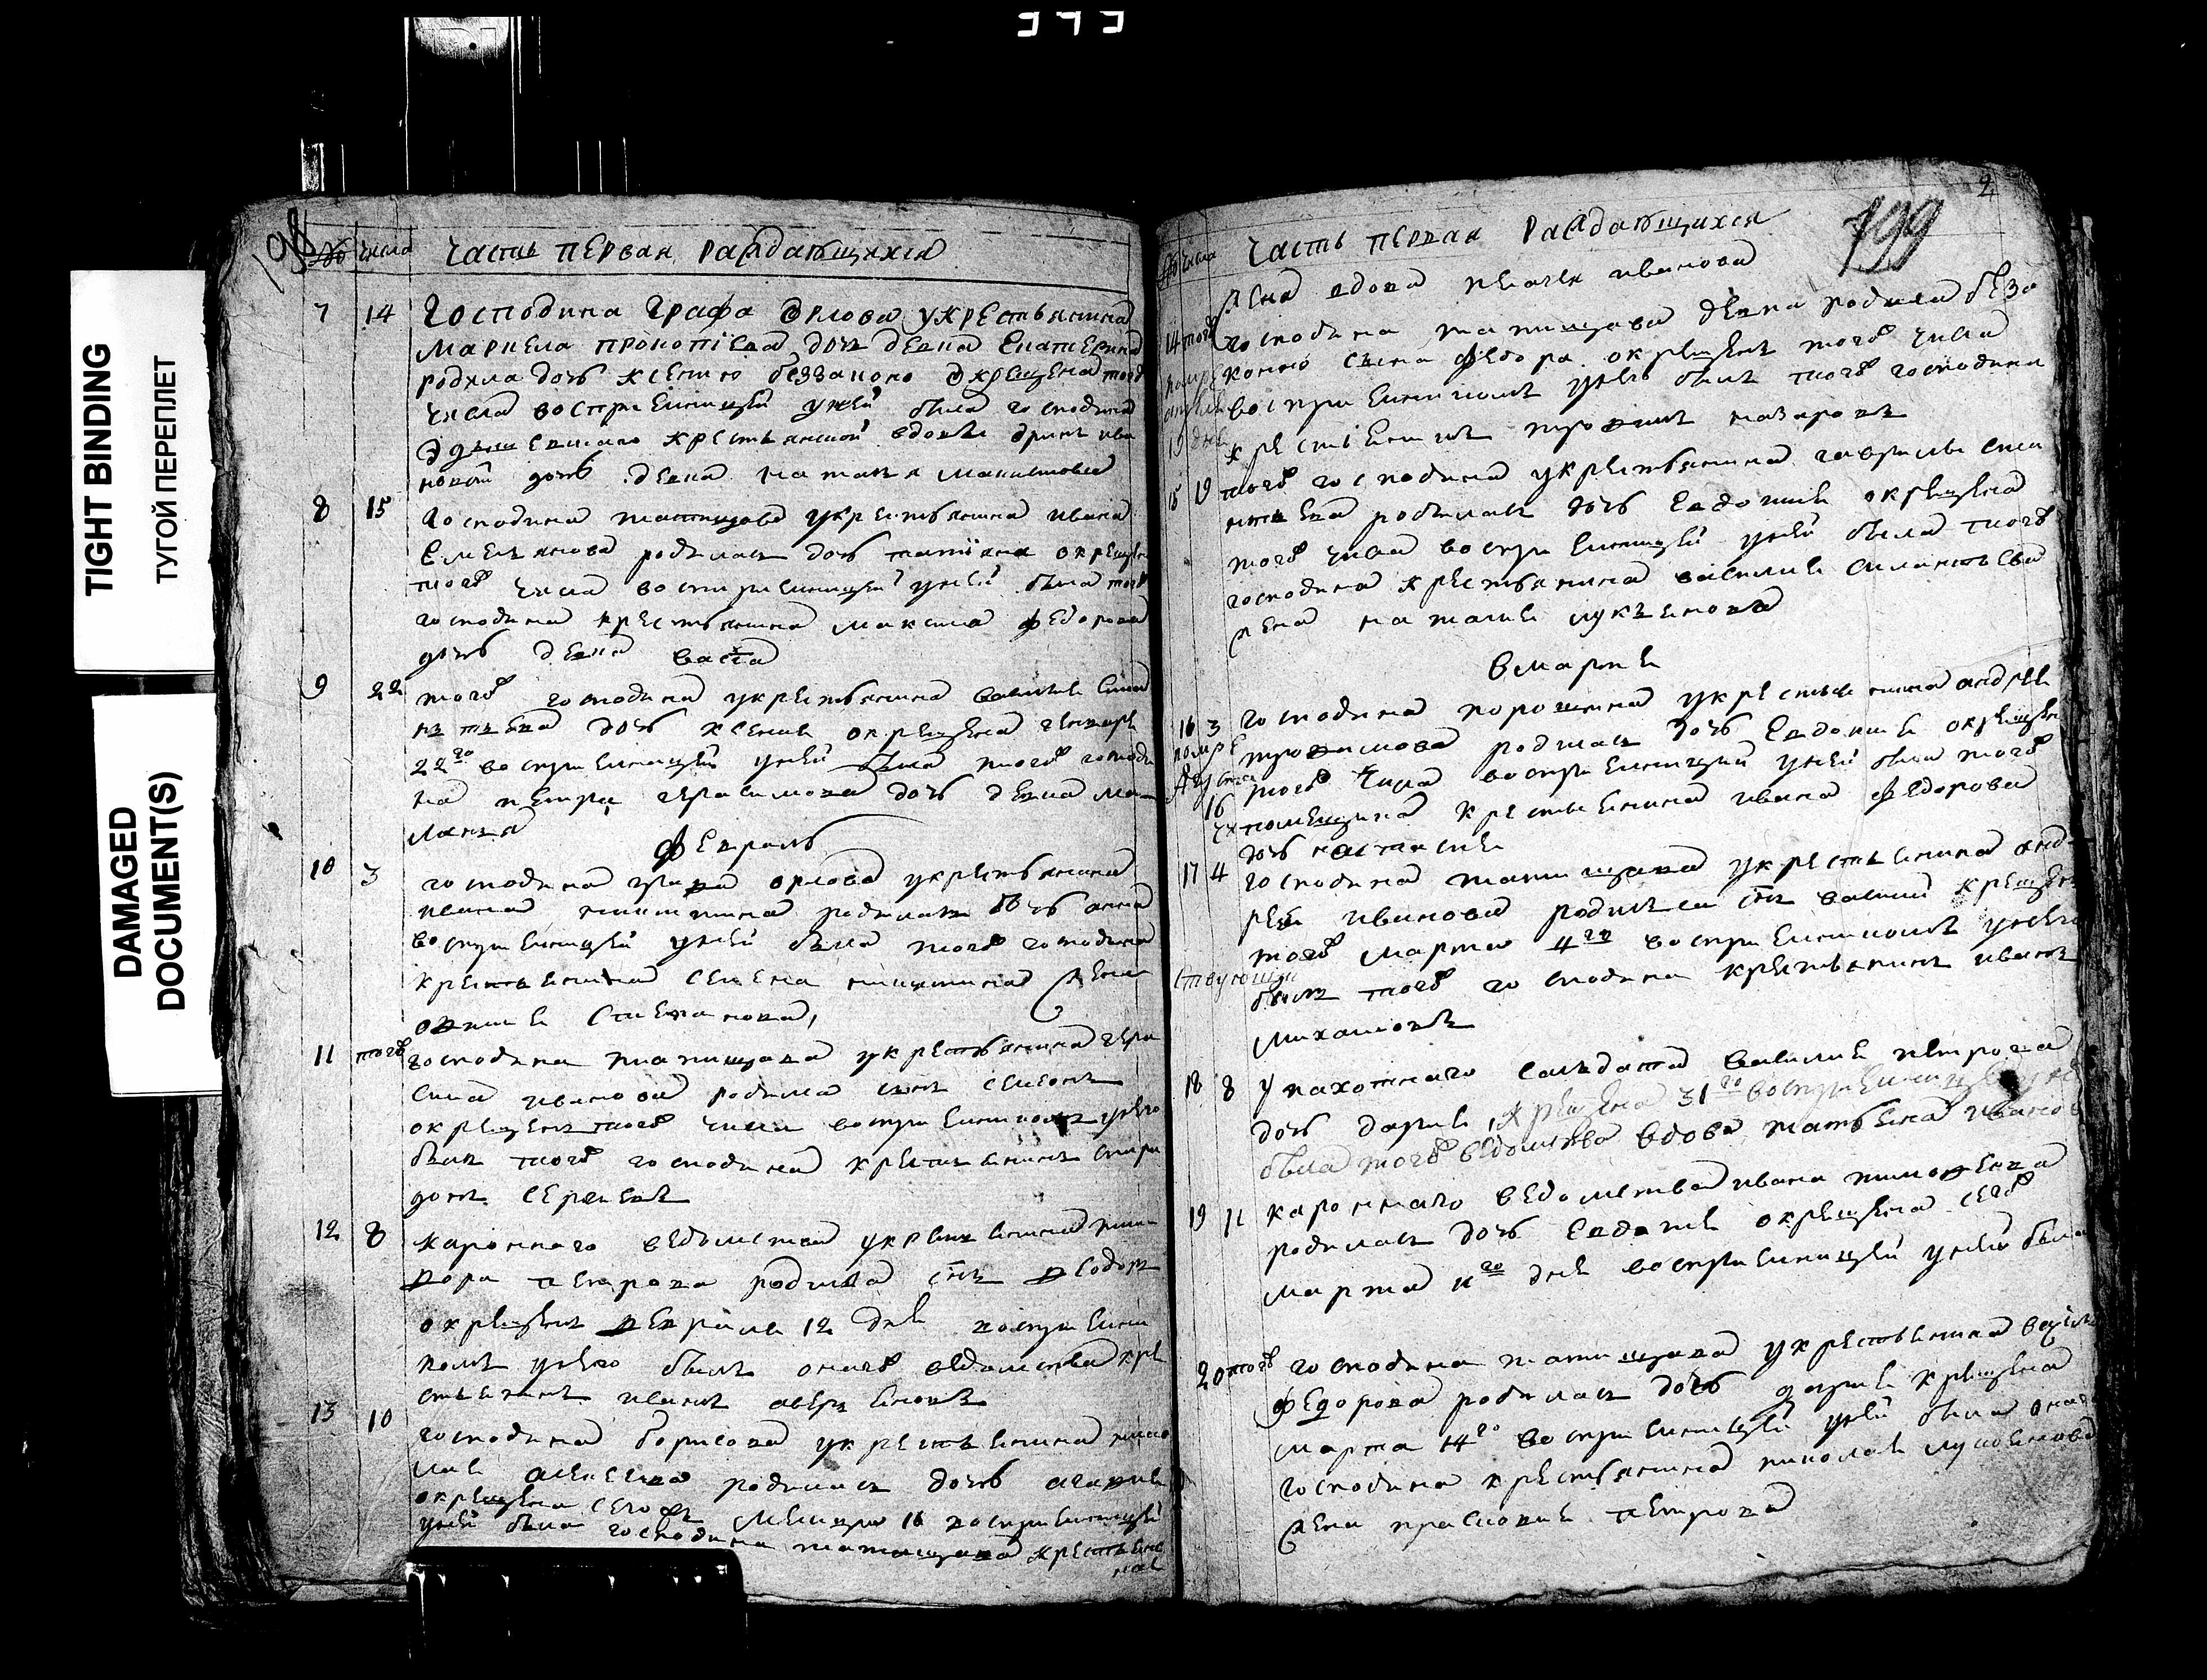 373
TIGHT BINDING
ТУГОЙ ПЕРЕПЛЕТ
DAMAGED
DOCUMENT(S)
198
№ числа Часть первая раждающихся
7 14 Господина графа Орлова у крестьянина
Маркела прокопїева дочь девка Екатерина
родила дочь ксению беззаконо окрещена тогож
числа восприемницей у ней была господина
крестьянской вдовы ива
новой дочь девка наталья
8 15 господина татищева у крестьянина ивана
Емельянова родилась дочь татїяна окрещена
тогож числа восприемницей у ней была тогож
господина крестьянина максима федорова
дочь девка васса
9 22 тогож господина у крестьянина василия
дочь ксения окрещена генваря
22го восприемницей у ней была тогож господи
на петра герасимова дочь девка ма
ланья
февраль
10 3 господина графа орлова у крестьянина
ивана никитина родилась дочь анна
восприемницей у ней была тогож господина
крестьянина семена никитина жена
степанова
11 тогож господина татищева у крестьянина гера
сима иванова родился сынъ семенъ
окрещенъ тогож числа восприемникомъ у него
былъ тогож господина крестьянинъ спири
донъ сергеевъ
12 8 каронного ведомства у крестьянина ники
фора петрова родился снъ федоръ
окрещенъ февраля 12 дня восприемни
комъ у него былъ оногож ведомства кре
стьянинъ иванъ аверьяновъ
13 10 господина борисова у крестьянина нико
лая алексеева родилась дочь агафия
окрещена сегожъ месяца 16 восприемницей
у ней была господина татищева крестьяни
на
2
199
№ числа Часть первая раждающихся
жена вдова пелагея иванова
14 тогож господина татищева девка родила безза
конно сына федора окрещенъ тогож числа
восприемникомъ у него былъ тогож господина
крестьянинъ трофимъ назаровъ
помре
19 дня
15 19 тогож господина у крестьянина гаврилы
родилась дочь Евдокия окрещена
тогож числа восприемницей у ней была тогож
господина крестьянина василия силантьева
жена наталия лукьянова
в марте
16 3 господина порошина у крестьянина андрея
трофимова родилась дочь Евдокия окрещена
тогож числа восприемницей у ней была тогож
помещика крестьянина ивана федорова
дочь настасия
помре
августа
16
17 4 господина татищева у крестьянина анд
рея иванова родился снъ василий крещенъ
тогож марта 4го восприемникомъ у него
былъ тогож господина крестьянинъ иванъ
михаиловъ
ствующи
18 8 у пахотнаго салдата василия петрова
дочь дария, крещена 31го восприемницей у ней
была тогож ведомства вдова татьяна иванова
19 11 каронного ведомства ивана тимофеева
родилась дочь Евдокия окрещена сегож
марта 11го дня восприемницей у ней была
20 тогож господина татищева у крестьянина василья
федорова родилась дочь дария крещена
марта 14го восприемницей у ней была оногож
господина крестьянина николая лукьянова
жена прасковия петрова